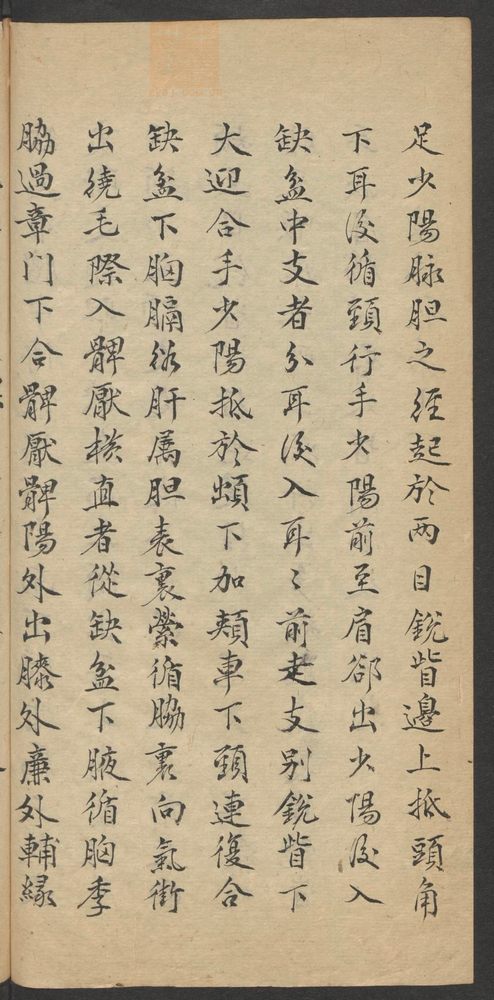 足少陽脉胆之経起於两目銳眥邊上抵頭角
下耳後循頸行手少陽前至肩郤出少陽後入
缺盆中支者分耳後入耳〻前走支别銳眥下
大迎合手少陽抵於䪼下加頬車下頸連復合
缺盆下胸膈絡肝属胆表裏縈循脇裏向氣街
出繞毛際入髀厭橫直者從缺盆下腋循胸季
脇過章门下合髀厭髀陽外出膝外廉外輔縁